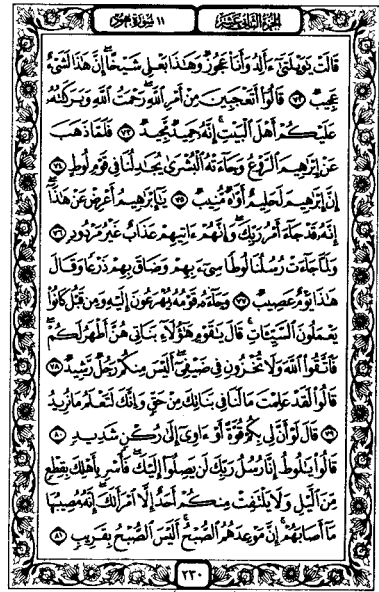 ١١ سورة هود الجزء الثاني عشر
قَالَتْ يَٰوَيْلَتَىٰٓ ءَأَلِدُ وَأَنَا۠ عَجُوزٌ وَهَٰذَا بَعْلِى شَيْخًا إِنَّ هَٰذَا لَشَىْءٌ
عَجِيبٌ ٧٢ قَالُوٓا۟ أَتَعْجَبِينَ مِنْ أَمْرِ ٱللَّهِ رَحْمَتُ ٱللَّهِ وَبَرَكَٰتُهُۥ
عَلَيْكُمْ أَهْلَ ٱلْبَيْتِ إِنَّهُۥ حَمِيدٌ مَّجِيدٌ ٧٣ فَلَمَّا ذَهَبَ
عَنْ إِبْرَٰهِيمَ ٱلرَّوْعُ وَجَآءَتْهُ ٱلْبُشْرَىٰ يُجَٰدِلُنَا فِى قَوْمِ لُوطٍ ٧٤
إِنَّ إِبْرَٰهِيمَ لَحَلِيمٌ أَوَّٰهٌ مُّنِيبٌ ٧٥ يَٰٓإِبْرَٰهِيمُ أَعْرِضْ عَنْ هَٰذَآ
إِنَّهُۥ قَدْ جَآءَ أَمْرُ رَبِّكَ وَإِنَّهُمْ ءَاتِيهِمْ عَذَابٌ غَيْرُ مَرْدُودٍ ٧٦
وَلَمَّا جَآءَتْ رُسُلُنَا لُوطًا سِىٓءَ بِهِمْ وَضَاقَ بِهِمْ ذَرْعًا وَقَالَ
هَٰذَا يَوْمٌ عَصِيبٌ ٧٧ وَجَآءَهُۥ قَوْمُهُۥ يُهْرَعُونَ إِلَيْهِ وَمِن قَبْلُ كَانُوا۟
يَعْمَلُونَ ٱلسَّيِّـَٔاتِ قَالَ يَٰقَوْمِ هَٰٓؤُلَآءِ بَنَاتِى هُنَّ أَطْهَرُ لَكُمْ
فَٱتَّقُوا۟ ٱللَّهَ وَلَا تُخْزُونِ فِى ضَيْفِىٓ أَلَيْسَ مِنكُمْ رَجُلٌ رَّشِيدٌ ٧٨
قَالُوا۟ لَقَدْ عَلِمْتَ مَا لَنَا فِى بَنَاتِكَ مِنْ حَقٍّ وَإِنَّكَ لَتَعْلَمُ مَا نُرِيدُ
٧٩ قَالَ لَوْ أَنَّ لِى بِكُمْ قُوَّةً أَوْ ءَاوِىٓ إِلَىٰ رُكْنٍ شَدِيدٍ ٨٠
قَالُوا۟ يَٰلُوطُ إِنَّا رُسُلُ رَبِّكَ لَن يَصِلُوٓا۟ إِلَيْكَ فَأَسْرِ بِأَهْلِكَ بِقِطْعٍ
مِّنَ ٱلَّيْلِ وَلَا يَلْتَفِتْ مِنكُمْ أَحَدٌ إِلَّا ٱمْرَأَتَكَ إِنَّهُۥ مُصِيبُهَا
مَآ أَصَابَهُمْ إِنَّ مَوْعِدَهُمُ ٱلصُّبْحُ أَلَيْسَ ٱلصُّبْحُ بِقَرِيبٍ ٨١
٢٣٠